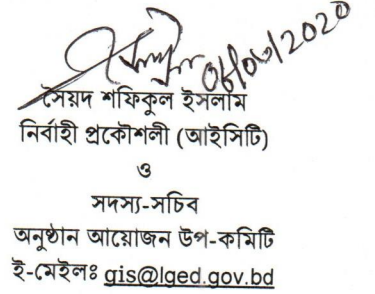 ০৬/০৬/2020
সৈয়দ শফিকুল ইসলাম
নির্বাহী প্রকৌশলী (আইসিটি)
ও
সদস্য-সচিব
অনুষ্ঠান আয়োজন উপ-কমিটি
ই-মেইলঃ gis@lged.gov.bd